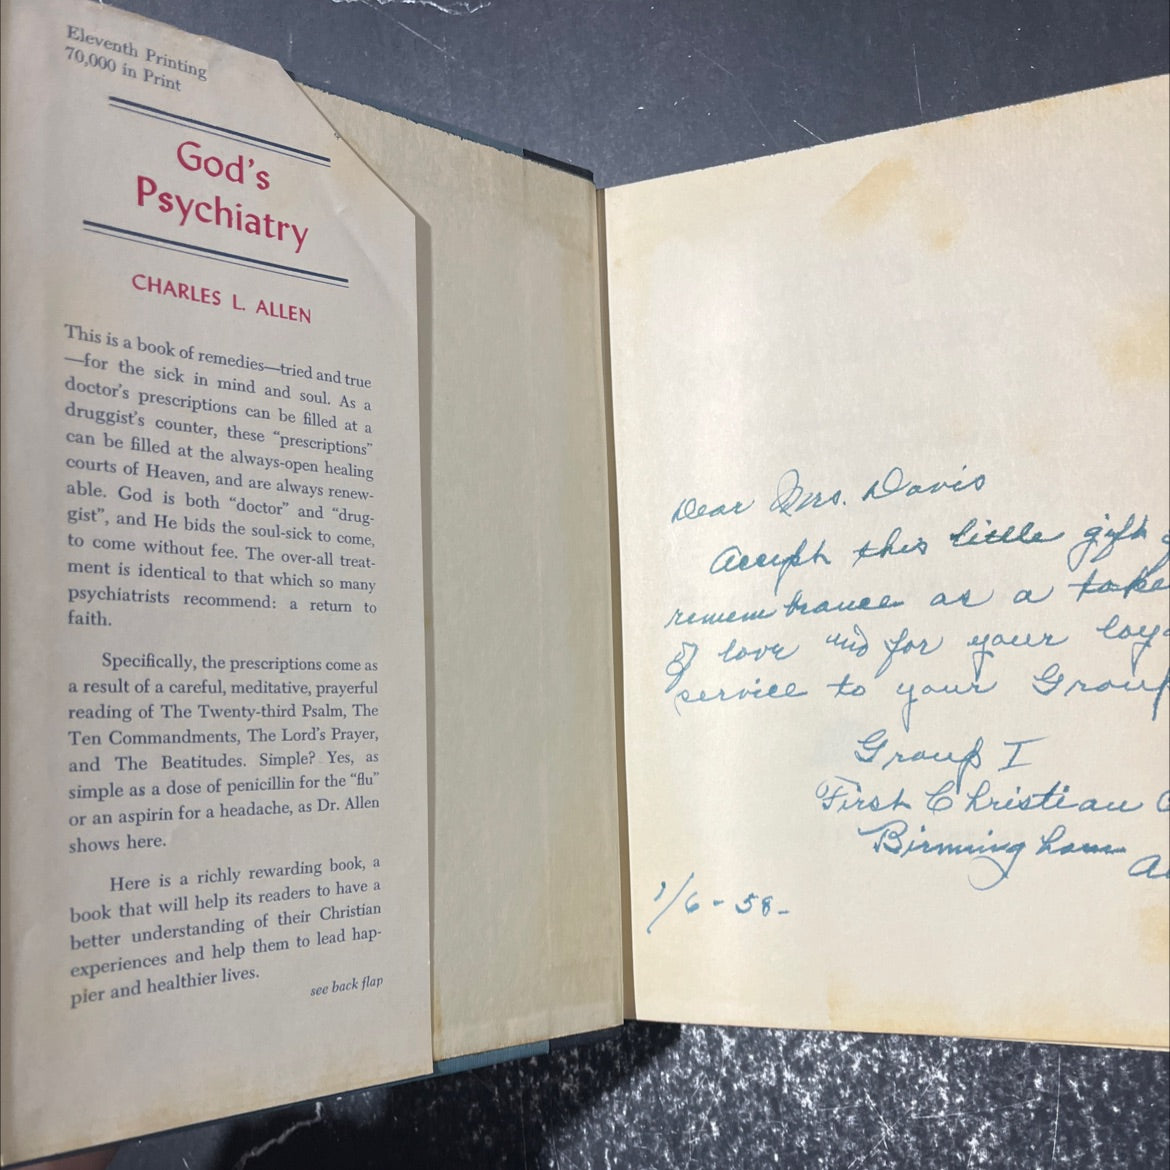 Eleventh Printing
70,000 in Print
God's
Psychiatry
CHARLES L. ALLEN
This is a book of remedies—tried and true
—for the sick in mind and soul. As a
doctor's prescriptions can be filled at a
druggist's counter, these “prescriptions”
can be filled at the always-open healing
courts of Heaven, and are always renew-
able. God is both “doctor” and “drug-
gist”, and He bids the soul-sick to come,
to come without fee. The over-all treat-
ment is identical to that which so many
psychiatrists recommend: a return to
faith.
Specifically, the prescriptions come as
a result of a careful, meditative, prayerful
reading of The Twenty-third Psalm, The
Ten Commandments, The Lord's Prayer,
and The Beatitudes. Simple? Yes, as
simple as a dose of penicillin for the “flu”
or an aspirin for a headache, as Dr. Allen
shows here.
Here is a richly rewarding book, a
book that will help its readers to have a
better understanding of their Christian
experiences and help them to lead hap-
pier and healthier lives.
see back flap
Dear Mrs. Davis
Accept this little gift
remembrance as a toke
of love and for your loya
service to your Group
Group I
First Christian C
Birmingham
1/6-58-